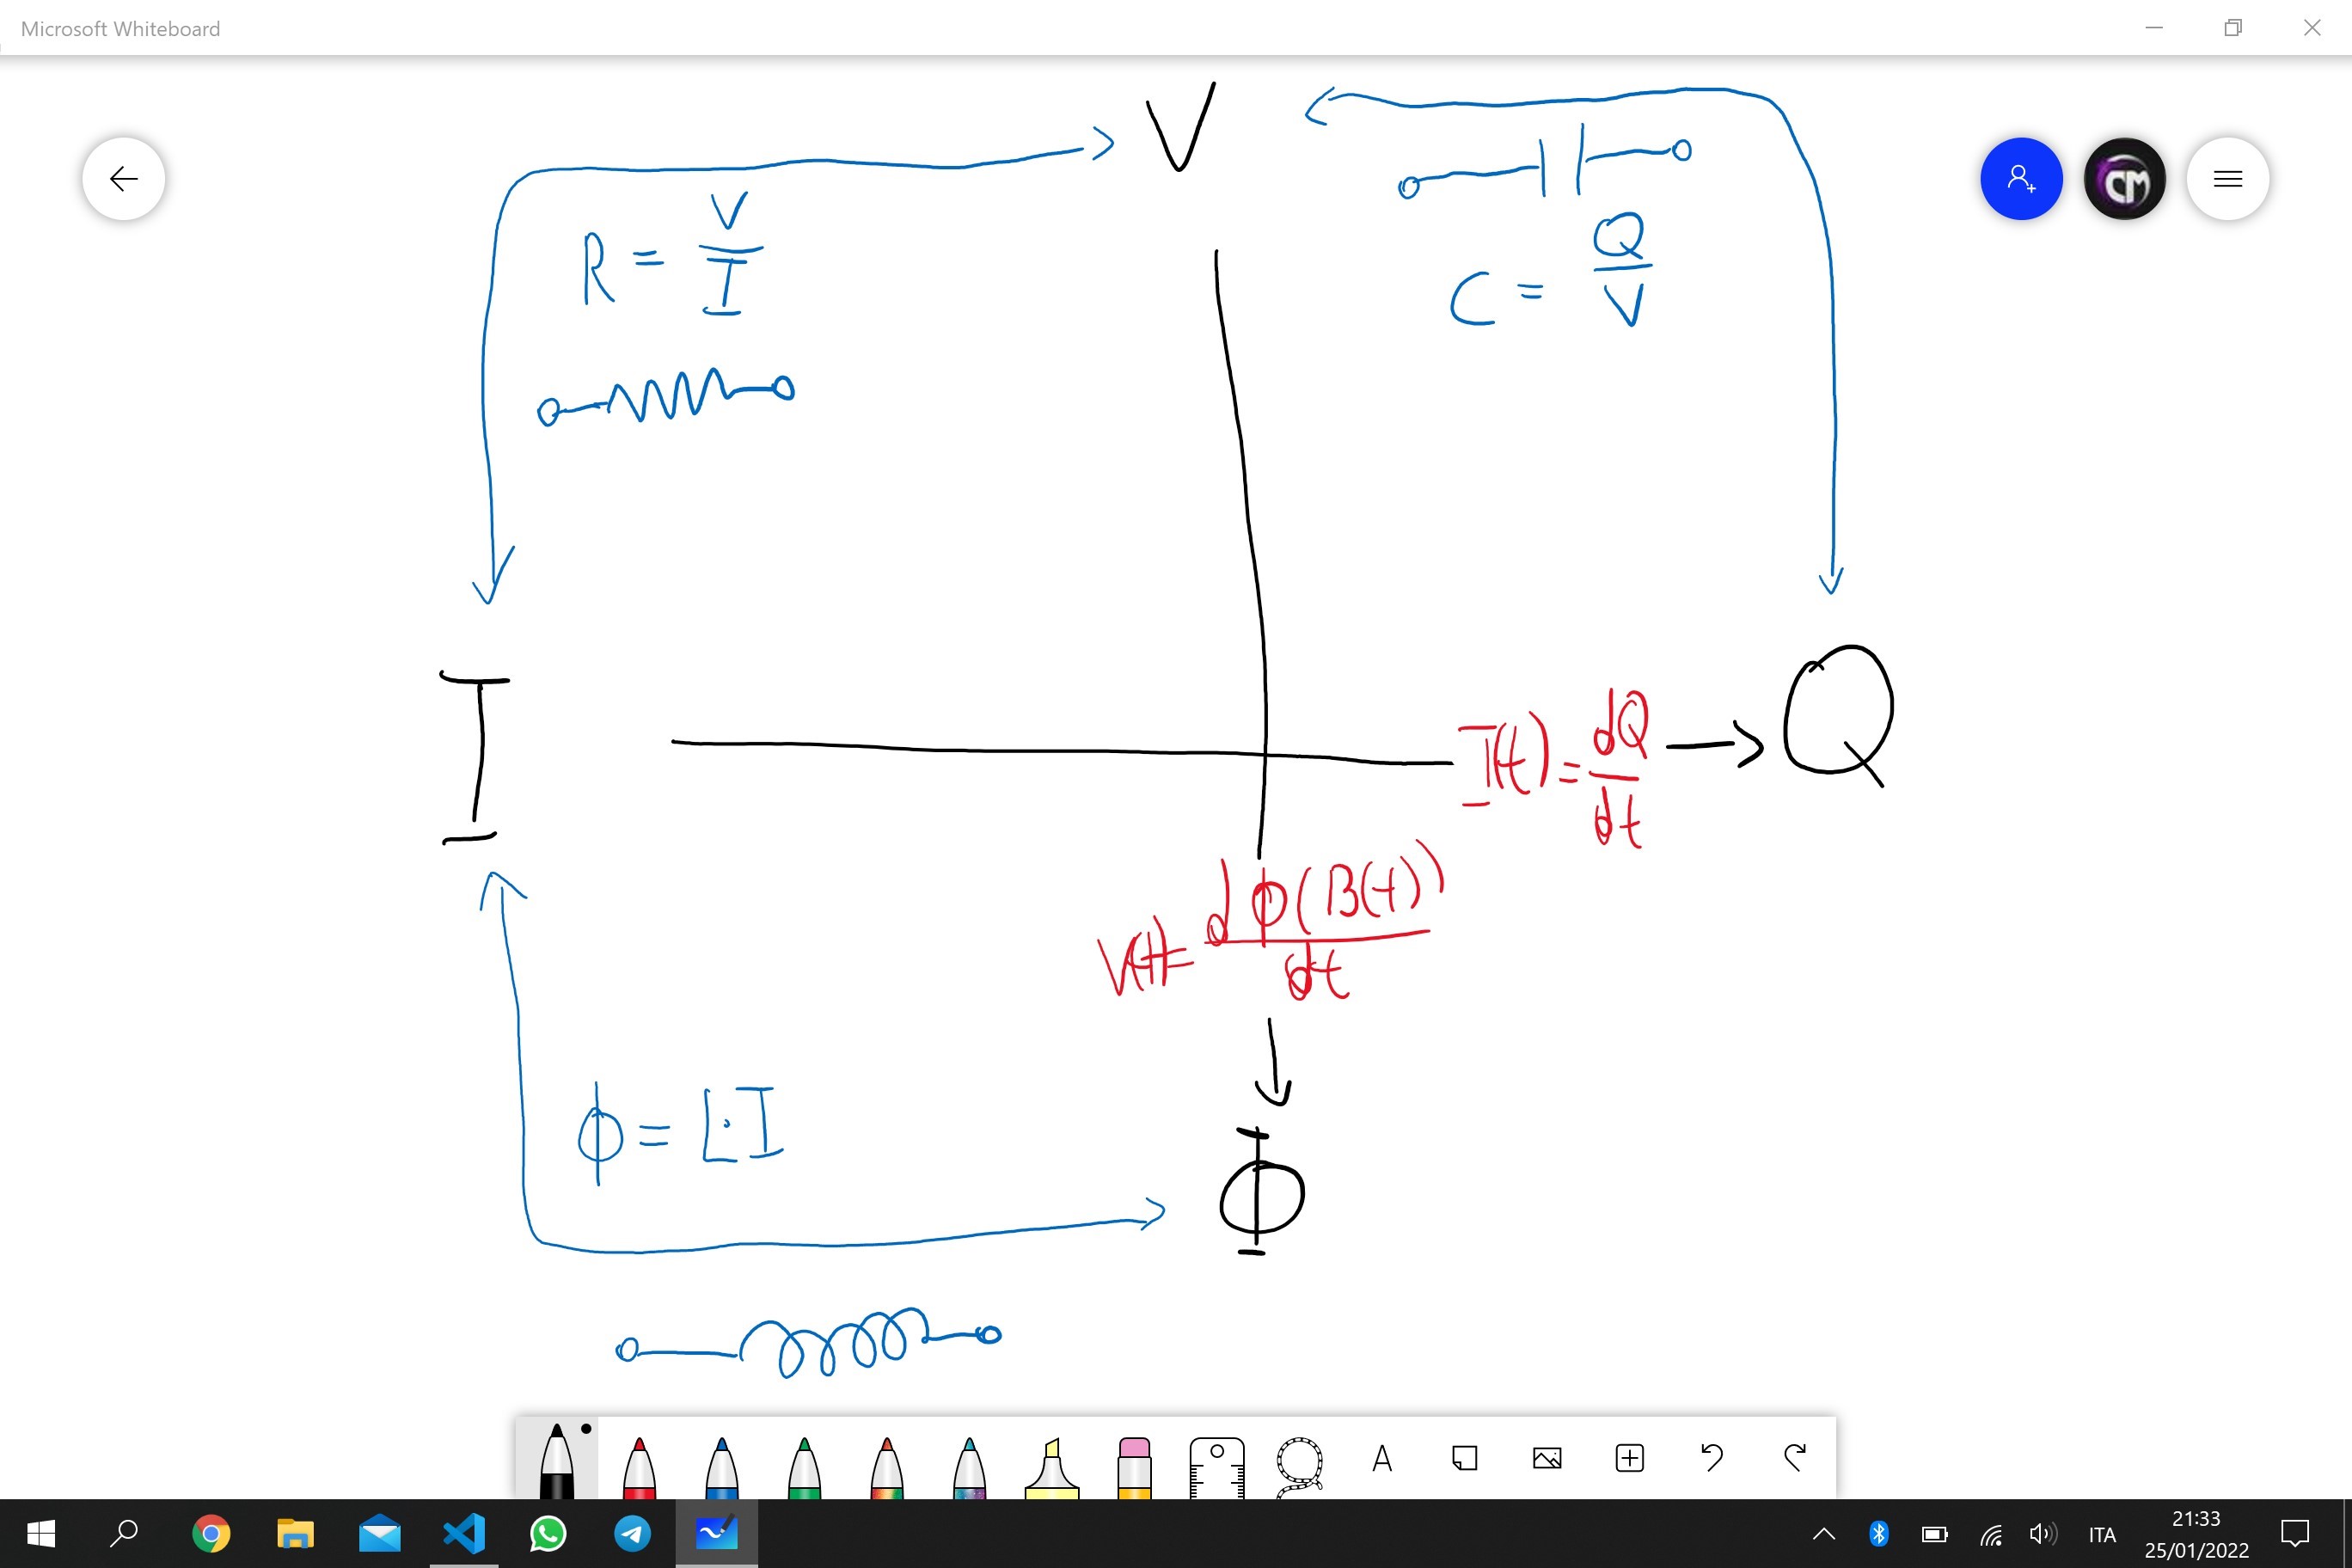 Microsoft Whiteboard
V
R = V/I
C = Q/V
CM
I
I(t) = dQ/dt → Q
V(t) = dϕ(B(t))/dt
ϕ = L·I
Φ
A
ITA
21:33
25/01/2022